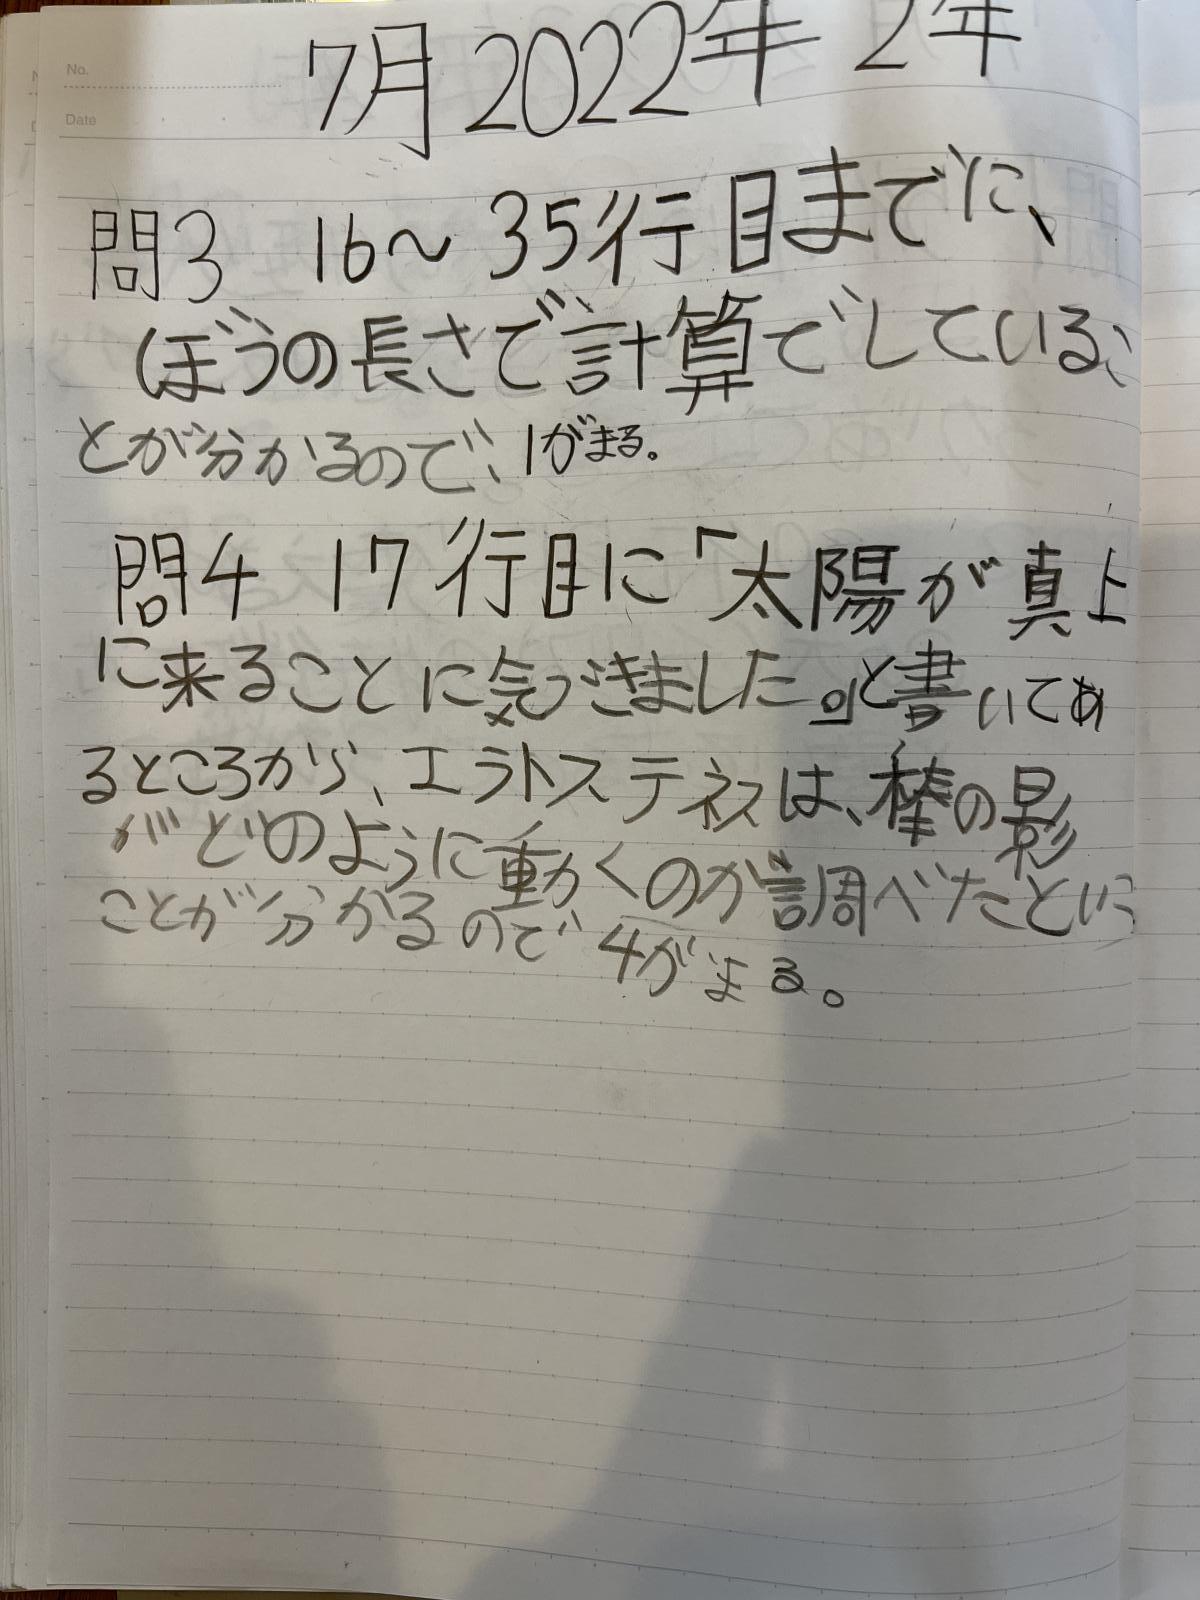 No.
Date
7月2022年 2年
問3 16〜35行目までに、
ぼうの長さで計算でしている、
とが分かるので、1がまる。
問4 17行目に「太陽が真上
に来ることに気づきました。」と書いてあ
るところから、エラトステネスは、棒の影
がどのように動くのか調べたとい
ことが分かるので4がまる。